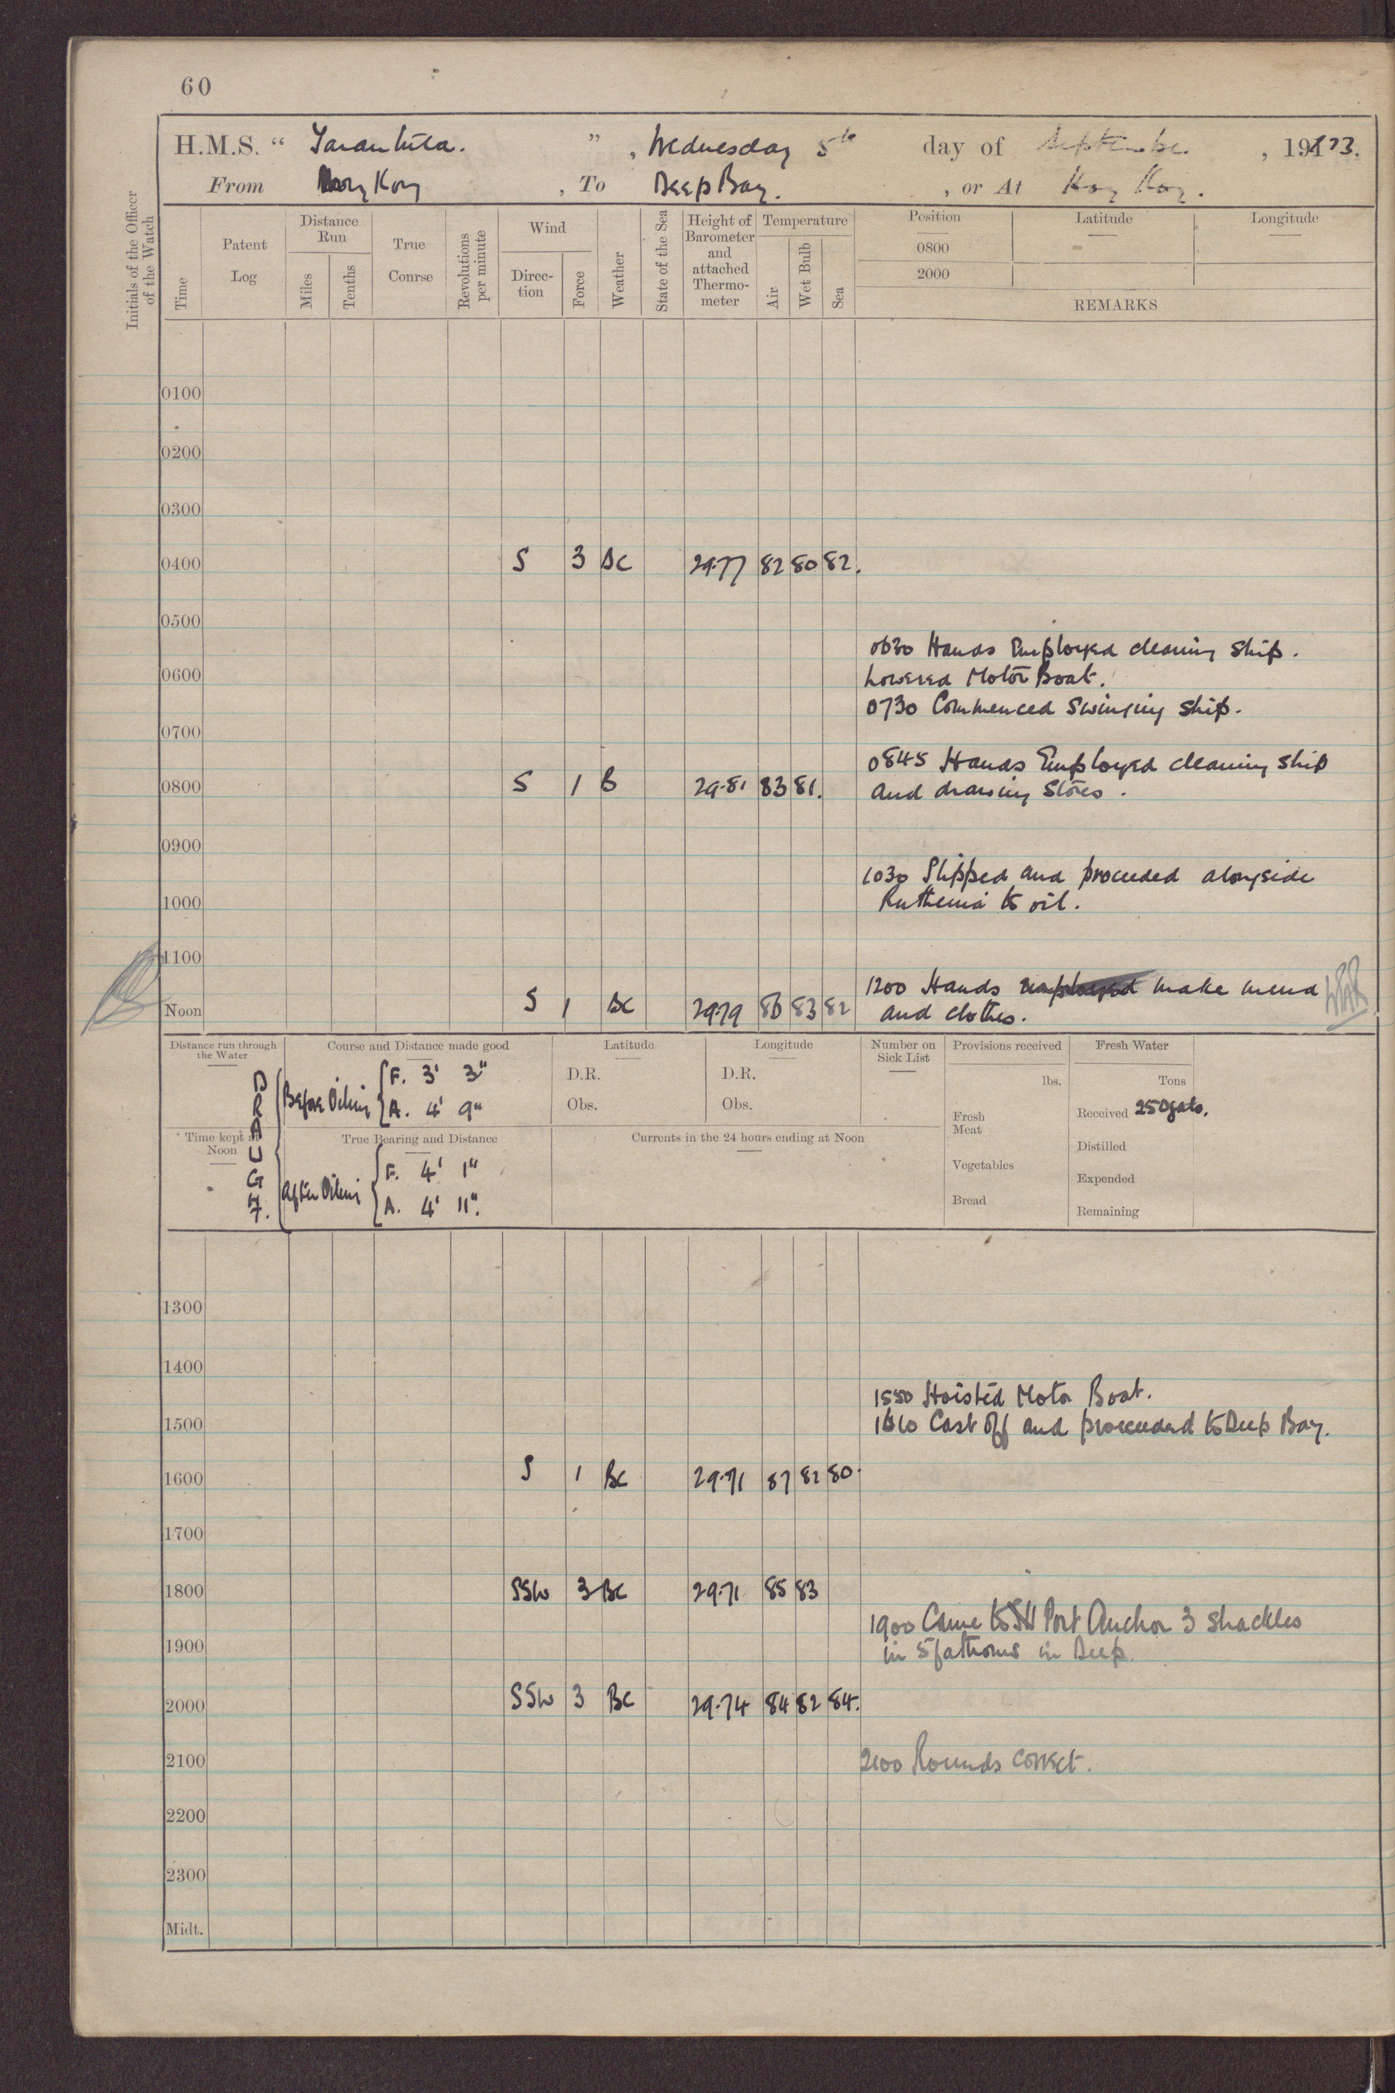 60
H.M.S. “ Tarantula. ” , Wednesday 5th day of September , 1923.
From Hong Kong , To Deep Bay. , or At Hong Kong.
Initials of the Officer of the Watch
Time
Patent Log
Distance Run
Miles
Tenths
True Course
Revolutions per minute
Wind
Direction
Force
Weather
State of the Sea
Height of Barometer and attached Thermometer
Temperature
Air
Wet Bulb
Sea
Position
Latitude
Longitude
0800
2000
REMARKS
0100
0200
0300
0400 S 3 BC 29.77 82 80 82.
0500
0630 Hands Employed cleaning ship.
0600
Lowered Motor Boat.
0730 Commenced Swinging ship.
0700
0845 Hands Employed cleaning ship
0800 S 1 B 29.81 83 81.
and drawing Stores.
0900
1030 Slipped and proceeded alongside
1000
Ruthenia to oil.
1100
1200 Hands employed make mend
Noon S 1 BC 29.79 86 83 82
and clothes.
Distance run through the Water
Course and Distance made good
Latitude
Longitude
Number on Sick List
Provisions received
Fresh Water
DRAUGHT.
Before Oiling
F. 3' 3"
A. 4' 9"
D.R.
D.R.
lbs.
Tons
Obs.
Obs.
Fresh Meat
Received 250galls.
Time kept at Noon
True Bearing and Distance
Currents in the 24 hours ending at Noon
Distilled
After Oiling
F. 4' 1"
A. 4' 11".
Vegetables
Expended
Bread
Remaining
1300
1400
1550 Hoisted Motor Boat.
1500
1610 Cast Off and proceeded to Deep Bay.
1600 S 1 BC 29.71 87 82 80.
1700
1800 SSW 3 BC 29.71 85 83
1900 Came to Std Port Anchor 3 shackles
1900
in 5 fathoms in Deep
2000 SSW 3 BC 29.74 84 82 84.
2100
2100 Rounds correct.
2200
2300
Midt.